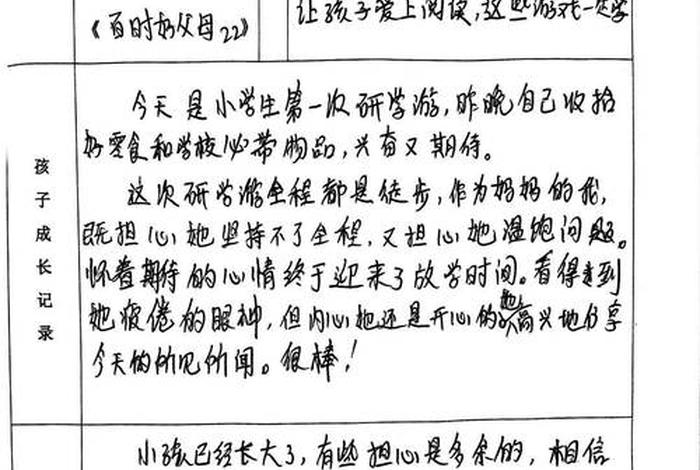 《百时好父母22》
让孩子爱上阅读,这些游戏一定要
孩子成长记录
今天是小学生第一次研学游,昨晚自己收拾
好零食和学校必带物品,兴奋又期待。
这次研学游全程都是徒步,作为妈妈的我,
既担心她坚持不了全程,又担心她温饱问题。
怀着期待的心情终于迎来了放学时间。看得到
她疲倦的眼神,但内心她还是开心的,她高兴地分享
今天的所见所闻。很棒!
小孩已经长大了,有些担心是多余的,相信